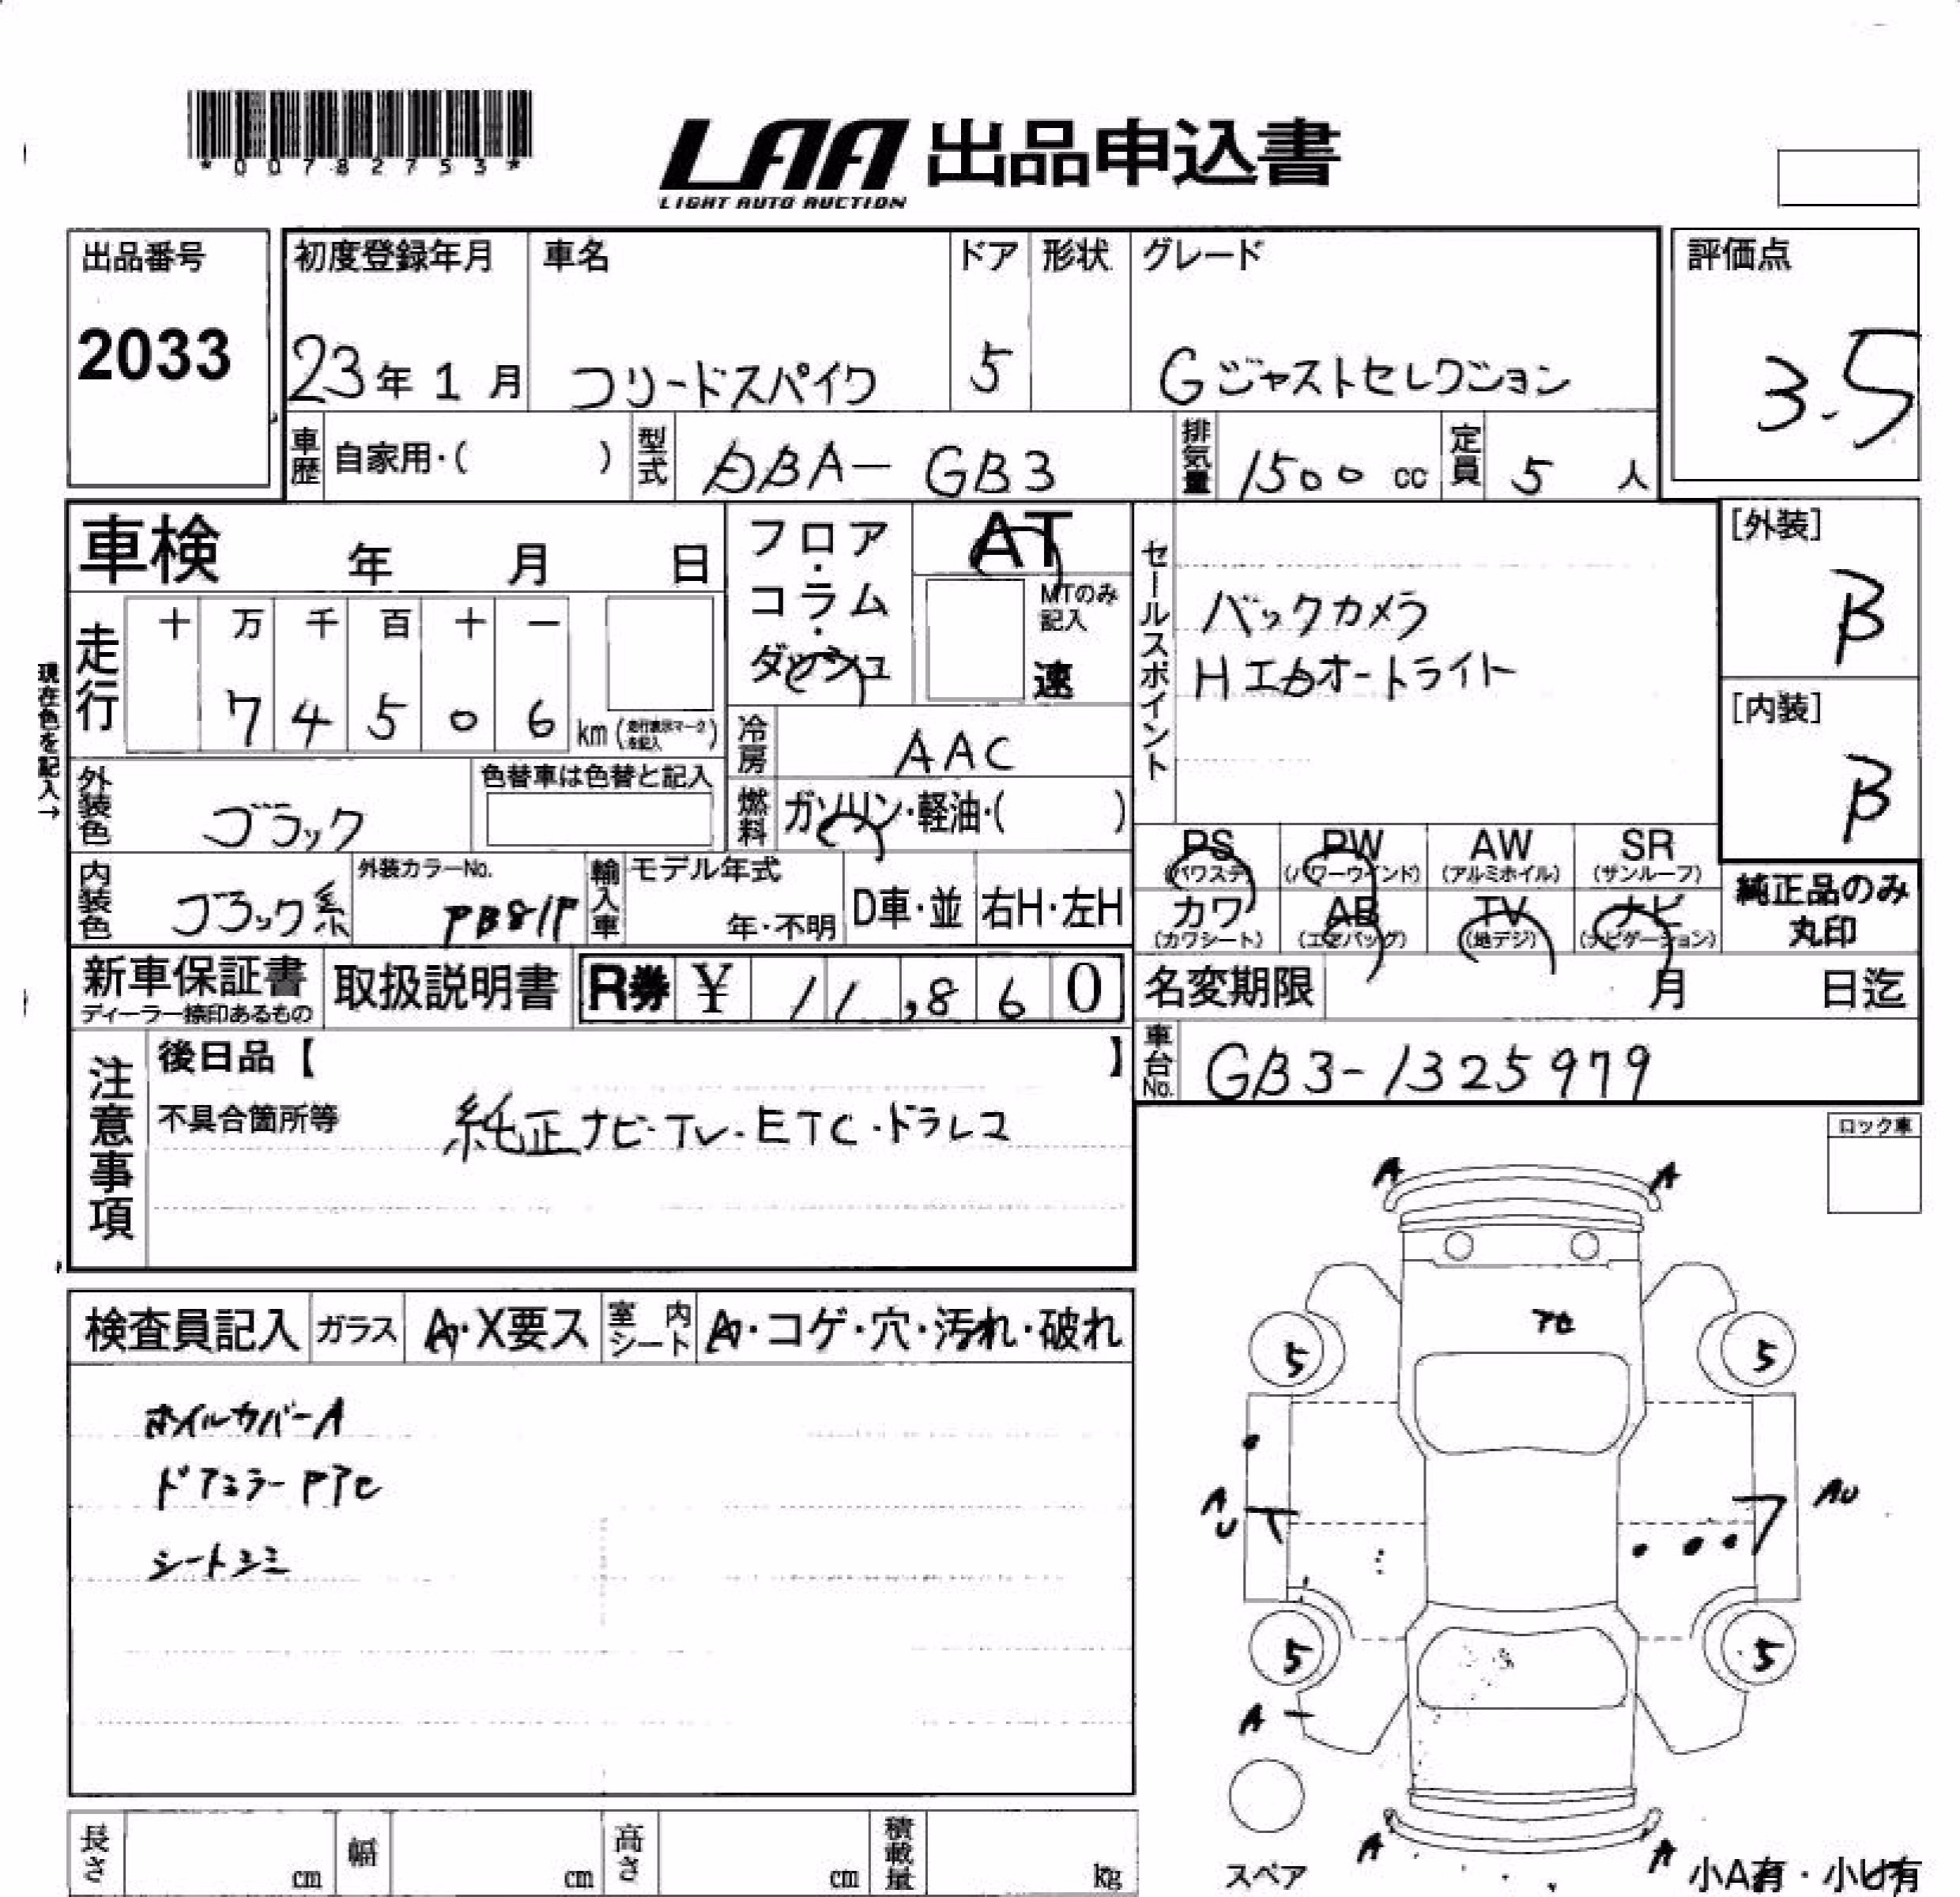 *00782753*
LAA 出品申込書
LIGHT AUTO AUCTION
出品番号
2033
初度登録年月 車名 ドア 形状 グレード
23年 1 月 フリードスパイク 5 Gジャストセレクション
評価点
3.5
車歴 自家用・( ) 型式 DBA-GB3 排気量 1500 cc 定員 5 人
車検 年 月 日
フロア・コラム・ダッシュ
AT
MTのみ記入
速
セールスポイント
バックカメラ
HID オートライト
[外装]
B
[内装]
B
現在色を記入→
走行 十 万 千 百 十 一
7 4 5 0 6 km (走行表示マークを記入)
冷房 AAC
外装色 ブラック 色替車は色替と記入
燃料 ガソリン・軽油・( )
内装色 ブラック系 外装カラーNo. PB81P
輸入車 モデル年式 年・不明 D車・並 右H・左H
PS (パワステ) PW (パワーウインド) AW (アルミホイル) SR (サンルーフ)
カワ (カワシート) AB (エアバッグ) TV (地デジ) ナビ (ナビゲーション)
純正品のみ丸印
新車保証書 ディーラー捺印あるもの 取扱説明書 R券 ¥ 11,860
名変期限 月 日迄
車台No. GB3-1325979
注意事項
後日品【 】
不具合箇所等 純正ナビ・TV・ETC・ドラレコ
ロック車
検査員記入 ガラス A・X要ス 室内シート A・コゲ・穴・汚れ・破れ
ホイルカバーA
ドアミラーPアセ
シートシミ
A A
アセ
5 5
AU AU
5 5
A
A A
スペア
小A有・小U有
長さ cm 幅 cm 高さ cm 積載量 kg